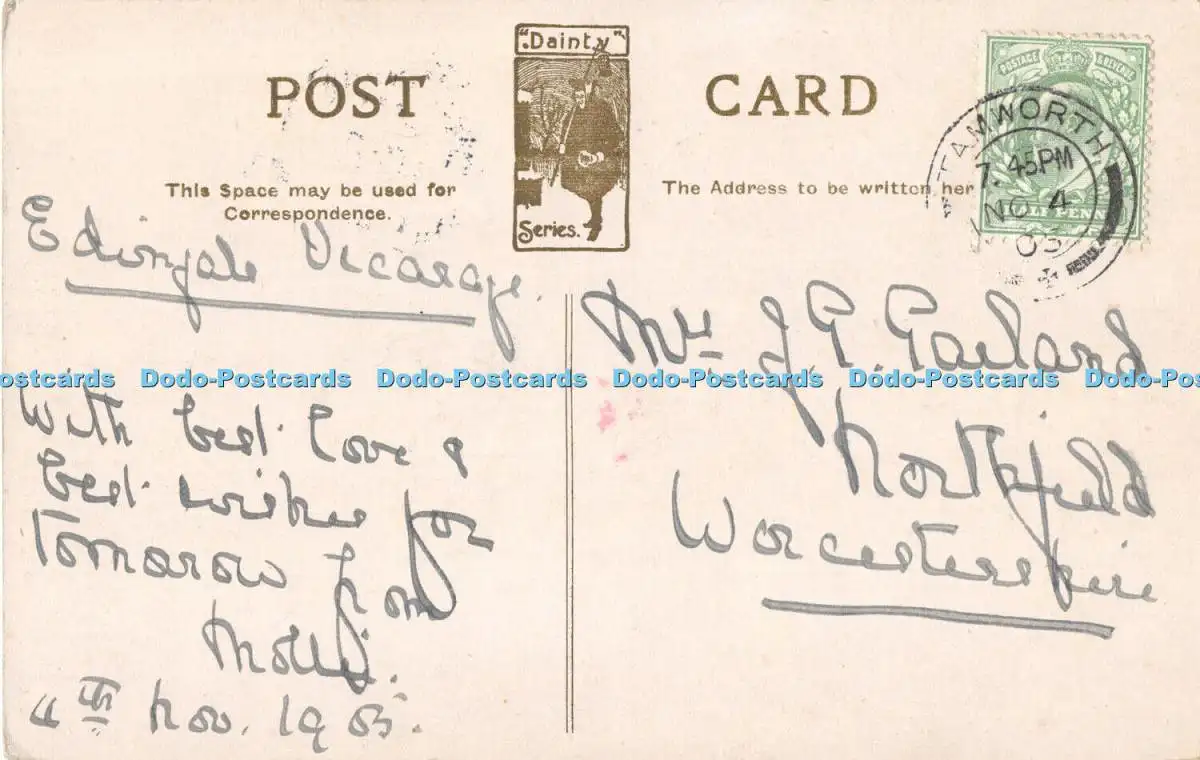 POST CARD
"Dainty"
Series.
This Space may be used for
Correspondence.
The Address to be written her
POSTAGE & REVENUE
HALFPENNY
TAMWORTH
7.45PM
NO 4
05
Edingale Vicarage.
With best love &
best wishes for
Tomorow from
Molly.
4th Nov. 1905.
Mrs J G. Garland
Northfield
Worcestershire
ostcards Dodo-Postcards Dodo-Postcards Dodo-Postcards Dodo-Postcards Dodo-Pos